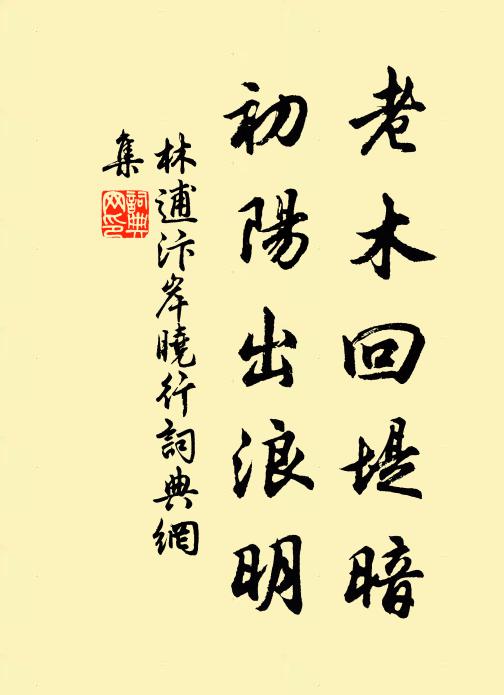 老木回堤暗
初陽出浪明
林逋汴岸曉行詞典網
集
詞典
网印